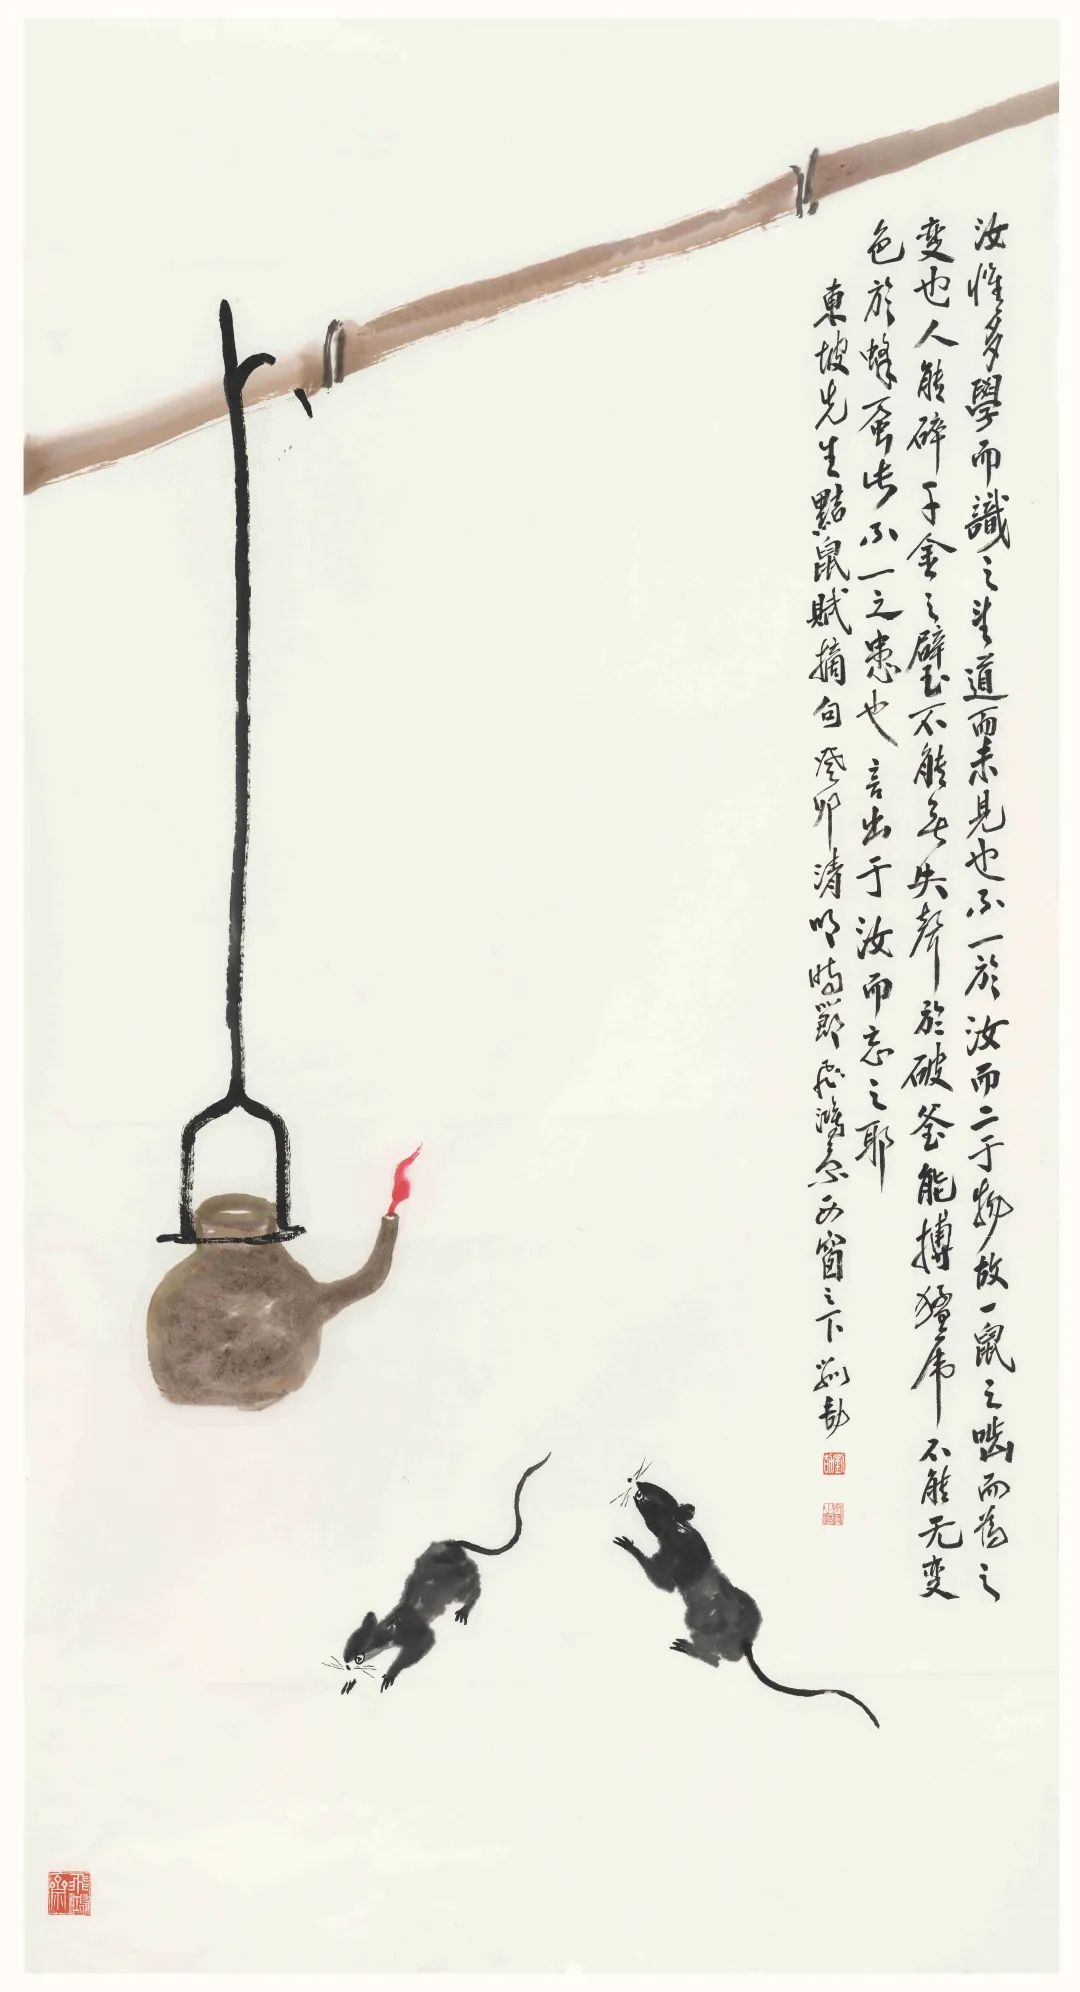 汝惟多學而識之望道而未見也不一於汝而二于物故一鼠之嚙而為之
变也人能碎千金之璧不能無失聲於破釜能搏猛虎不能无变
色於蜂虿此不一之患也言出于汝而忘之耶
東坡先生黠鼠賦摘句癸卯清明時節飛鴻斋西窗之下
飛鴻齋